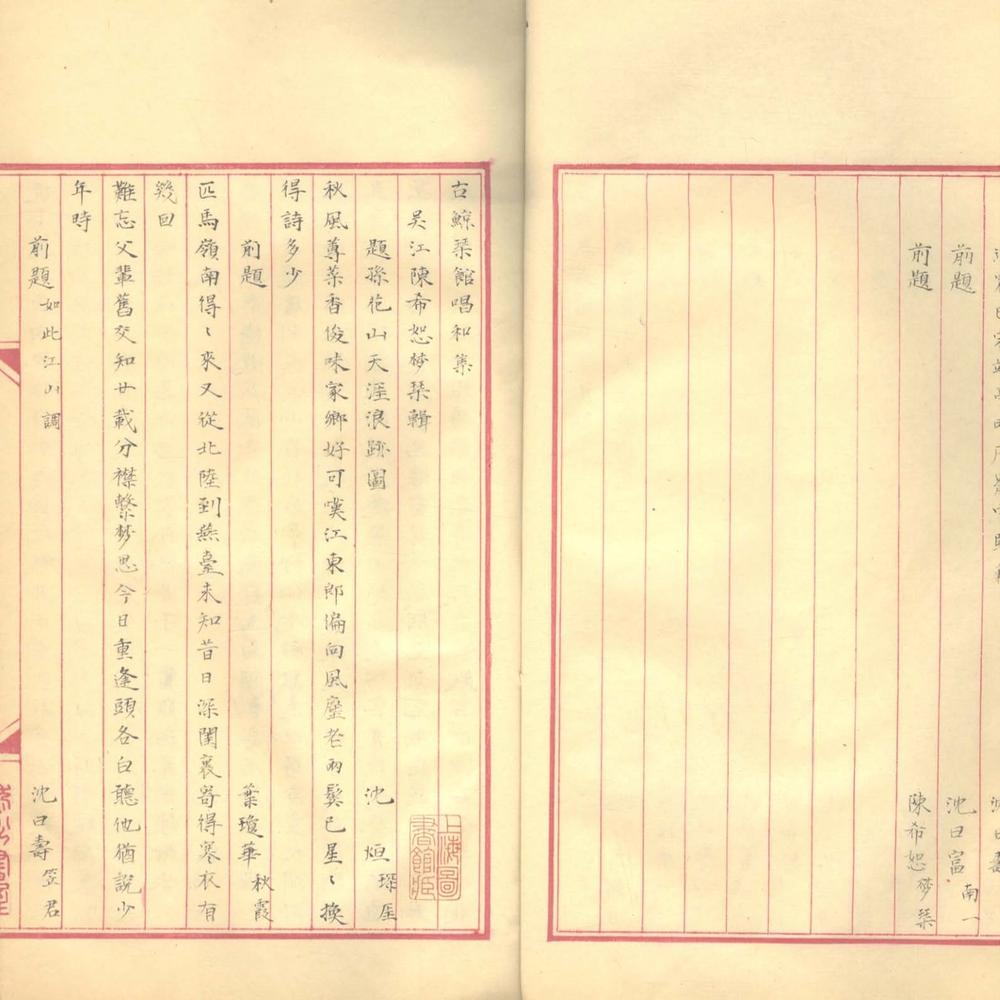 前題
沈曰富 南一
前題
陳希恕 夢琹
古鯨琹館唱和集
吳江陳希恕夢琹輯
題孫花山天涯浪跡圖
沈烜 琛厓
秋風蓴菜香俊味家鄉好可嘆江東郎偏向風塵老兩鬢已星〻換
得詩多少
前題
葉瓊華 秋霞
匹馬嶺南得〻來又從北陸到燕臺未知昔日深閨裏寄得寒衣有
幾回
難忘父輩舊交知廿載分襟繫夢思今日重逢頭各白聽他猶說少
年時
前題 如此江山調
沈曰壽 笠君
上海圖書館藏